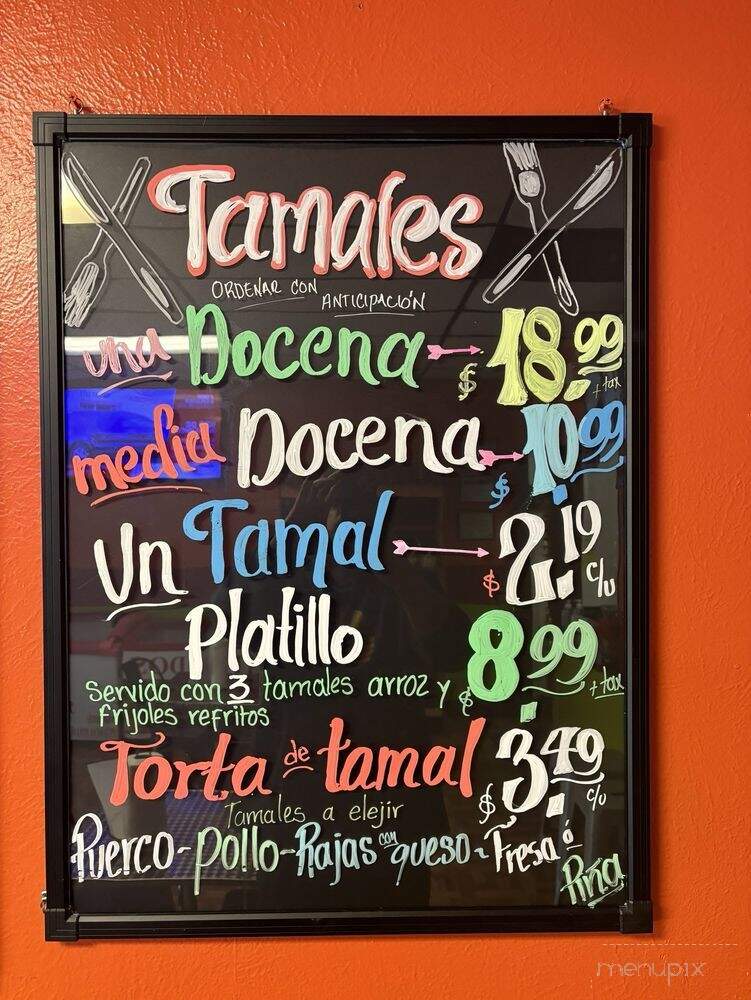 Tamales
ORDENAR CON ANTICIPACIÓN
una Docena $18.99 + tax
media Docena $10.99
Un Tamal $2.19 c/u
Platillo
Servido con 3 tamales arroz y $8.99 + tax
frijoles refritos
Torta de tamal $3.49 c/u
Tamales a elejir
Puerco - pollo - Rajas con queso - Fresa ó
Piña
menupix